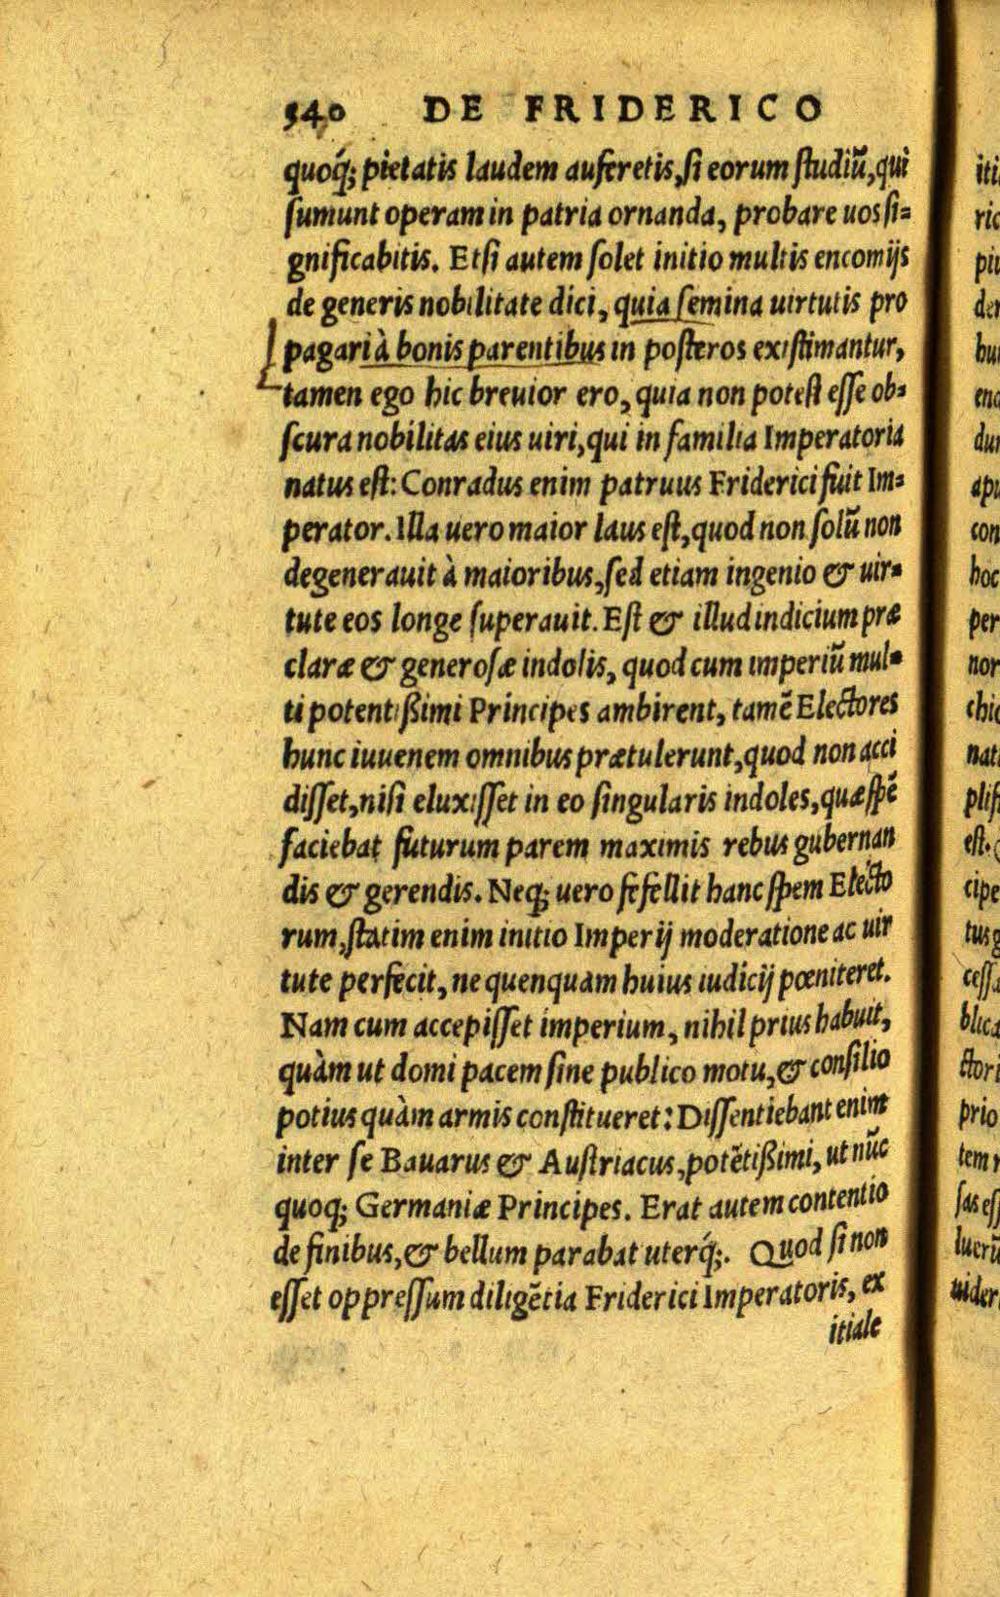 540 DE FRIDERICO
quoq́; pietatis laudem auferetis, ſi eorum ſtudiũ, qui
ſumunt operam in patria ornanda, probare uos ſi=
gnificabitis. Etſi autem ſolet initio multis encomijs
de generis nobilitate dici, quia ſemina uirtutis pro
pagari à bonis parentibus in poſteros exiſtimantur,
tamen ego hic breuior ero, quia non poteſt eſſe ob=
ſcura nobilitas eius uiri, qui in familia Imperatoria
natus eſt: Conradus enim patruus Friderici fuit Im=
perator. Illa uero maior laus eſt, quod non ſolũ non
degenerauit à maioribus, ſed etiam ingenio & uir=
tute eos longe ſuperauit. Eſt & illud indicium præ
claræ & generoſæ indolis, quod cum imperiũ mul=
ti potentißimi Principes ambirent, tamẽ Electores
hunc iuuenem omnibus prætulerunt, quod non acci
diſſet, niſi eluxiſſet in eo ſingularis indoles, quæ ſpẽ
faciebat futurum parem maximis rebus gubernan
dis & gerendis. Neq; uero fefellit hanc ſpem Electo
rum, ſtatim enim initio Imperij moderatione ac uir
tute perfecit, ne quenquam huius iudicij pœniteret.
Nam cum accepiſſet imperium, nihil prius habuit,
quàm ut domi pacem ſine publico motu, & conſilio
potius quàm armis conſtitueret: Diſſentiebant enim
inter ſe Bauarus & Auſtriacus, potẽtißimi, ut nũc
quoq; Germaniæ Principes. Erat autem contentio
de finibus, & bellum parabat uterq́;. Quod ſi non
eſſet oppreſſum diligẽtia Friderici Imperatoris, ex
itiale